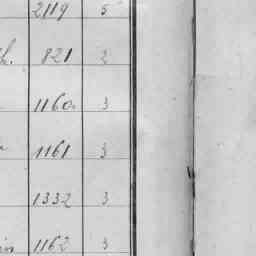 2119 5
h. 821 2
1160 3
1161 3
1332 3
in 1162 3